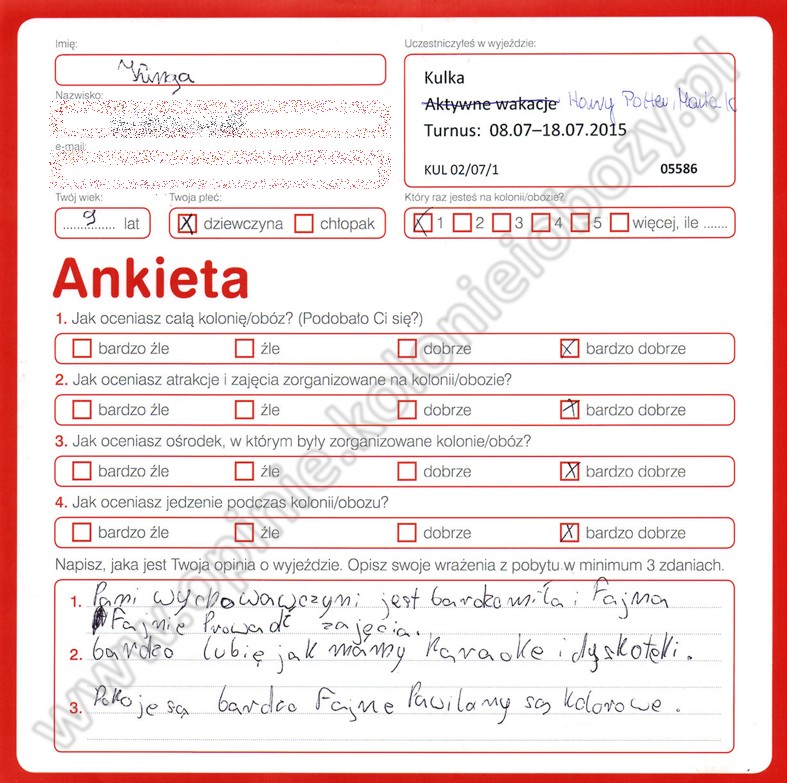 Imię:
Uczestniczyłeś w wyjeździe:
Kinga
Kulka
Nazwisko:
Aktywne wakacje Harry Potter, Maria K
Turnus: 08.07–18.07.2015
e-mail:
KUL 02/07/1 05586
Twój wiek: Twoja płeć: Który raz jesteś na kolonii/obozie?
9 lat X dziewczyna chłopak X 1 2 3 4 5 więcej, ile .......
Ankieta
1. Jak oceniasz całą kolonię/obóz? (Podobało Ci się?)
bardzo źle źle dobrze X bardzo dobrze
2. Jak oceniasz atrakcje i zajęcia zorganizowane na kolonii/obozie?
bardzo źle źle dobrze X bardzo dobrze
3. Jak oceniasz ośrodek, w którym były zorganizowane kolonie/obóz?
bardzo źle źle dobrze X bardzo dobrze
4. Jak oceniasz jedzenie podczas kolonii/obozu?
bardzo źle źle dobrze X bardzo dobrze
Napisz, jaka jest Twoja opinia o wyjeździe. Opisz swoje wrażenia z pobytu w minimum 3 zdaniach.
1. Pani wychowawczyni jest bardzo miła i Fajna
Fajnie Prowadź zajęcia.
2. bardzo lubię jak mamy Karaoke i dyskotęki.
3. Pokoje są bardzo Fajne Pawilany są kolorowe.
www.opinie.kolonieiobozy.pl